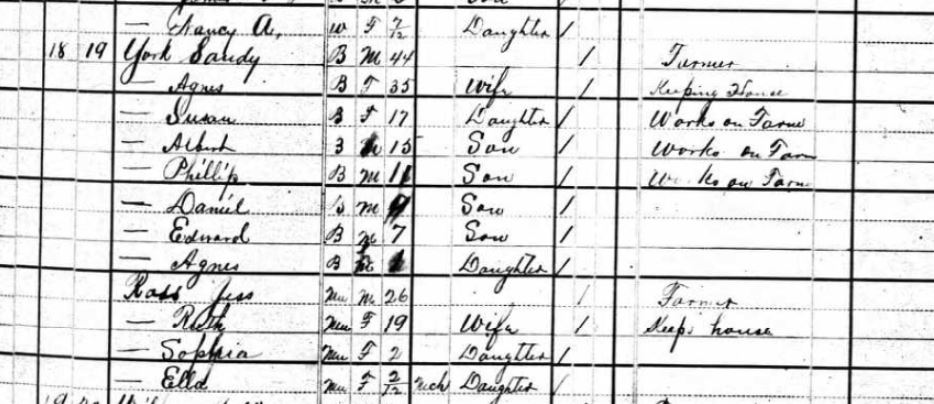 — Nancy A. W F 7/12 Daughter /
18 19 York Sandy B M 44 / Farmer
— Agnes B F 35 Wife / Keeping House
— Susan B F 17 Daughter / Works on Farm
— Albert B M 15 Son / Works on Farm
— Phillip B M 11 Son / Works on Farm
— Daniel B M Son /
— Edward B M 7 Son /
— Agnes B Daughter /
Ross Jess Mu M 26 / Farmer
— Ruth Mu F 19 Wife / Keeps house
— Sophia Mu F 2 Daughter /
— Ella Mu F 2/12 Daughter /